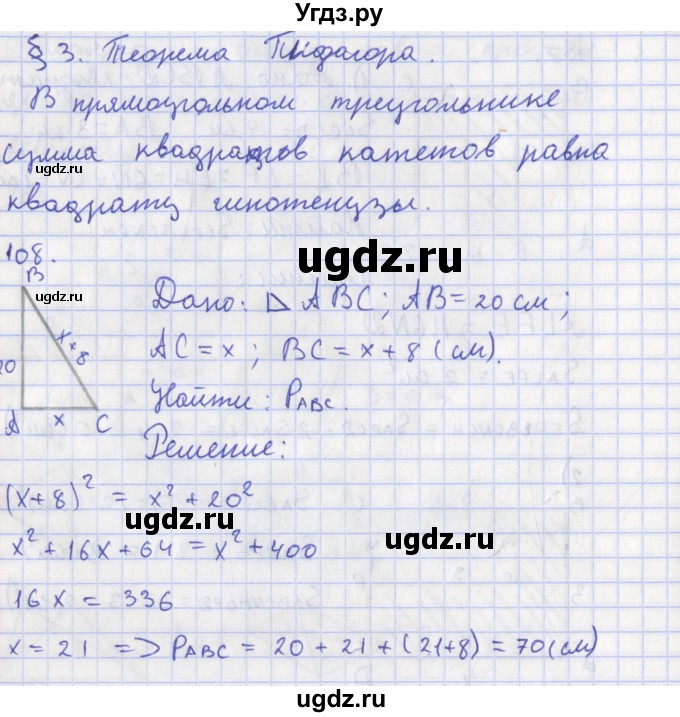 Угдз.ру
§ 3. Теорема Пифагора.
В прямоугольном треугольнике
сумма квадратов катетов равна
квадрату гипотенузы.
ugdz.ru
108.
B
ugdz.ru
x+8
20
A x C
Дано: ⊿ ABC; AB = 20 см;
AC = x; BC = x + 8 (см).
Найти: P_ABC.
Решение:
(x+8)² = x² + 20²
ugdz.ru
ugdz.ru
x² + 16x + 64 = x² + 400
16x = 336
x = 21 => P_ABC = 20 + 21 + (21+8) = 70 (см)
ugdz.ru